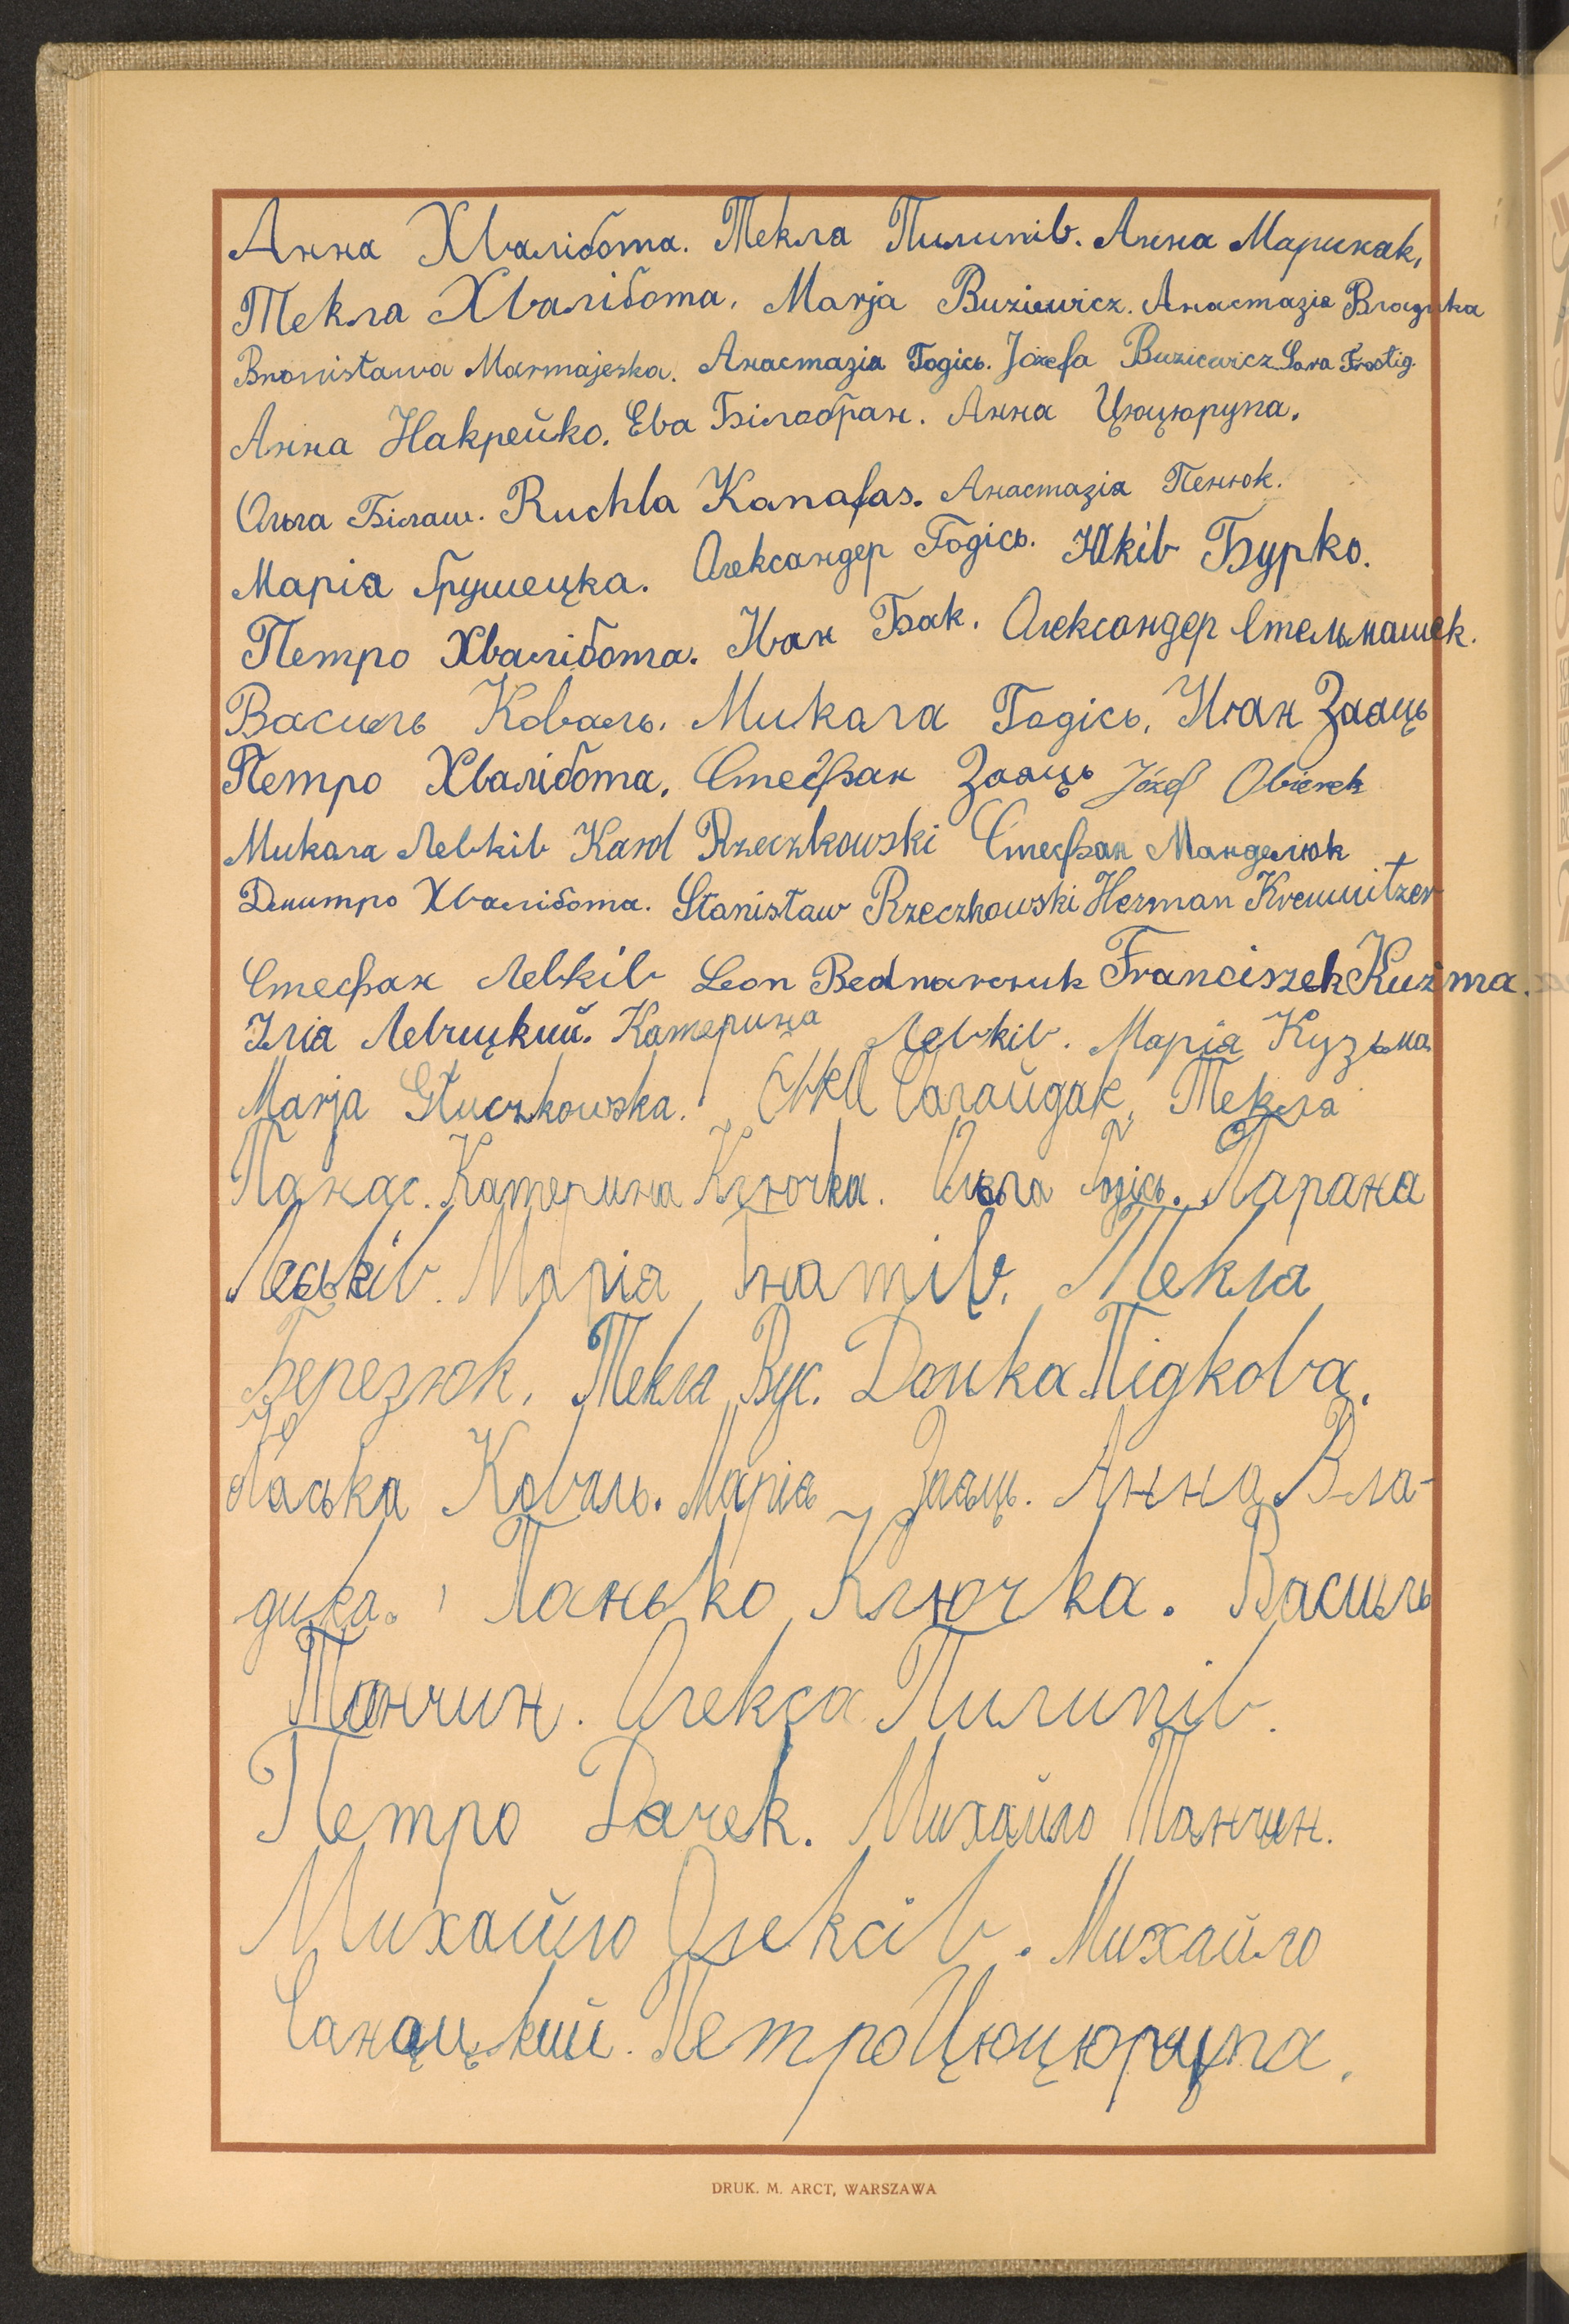 Анна Хвалібота. Текла Пилипів. Анна Маринак,
Текла Хвалібота, Marja Buziewicz. Анастазія Владика
Bronisława Marmajeska. Анастазія Годісь. Józefa Buziewicz Sara Frostig.
Анна Накрейко. Ева Білобран. Анна Цюцюрупа.
Ольга Білаш. Ruchla Kanafas. Анастазія Пенюк.
Марія Грушецка. Олександер Годісь. Юків Бурко.
Петро Хвалібота. Иван Бак. Олександер Стельмашек.
Василь Коваль. Микола Годісь, Иван Зааць
Петро Хвалібота, Стефан Зааць Józef Obierek
Микола Левків Karol Rzeczkowski Стефан Манделюк
Дмитро Хвалібота. Stanisław Rzeczkowski Herman Kremnitzer
Стефан Левків Leon Bednarczuk Franciszek Kuźma.
Ілія Левицкий. Катерина Левків. Марія Кузьма
Marja Głuczkowska. Салайдак, Текла
Панас. Катерина Ключка. Ольга Годісь. Парана
Леськів. Марія Гнатів. Текла
Березюк. Текля Вус. Донька Підкова.
Коваль. Марія Зааць. Анна Вла-
дика. Панько Ключка. Василь
Танчин. Олекса Пилипів.
Петро Дачек. Михайло Танчин.
Михайло Олексів. Михайло
Саноцький. Петро Цюцюрупа.
DRUK. M. ARCT, WARSZAWA